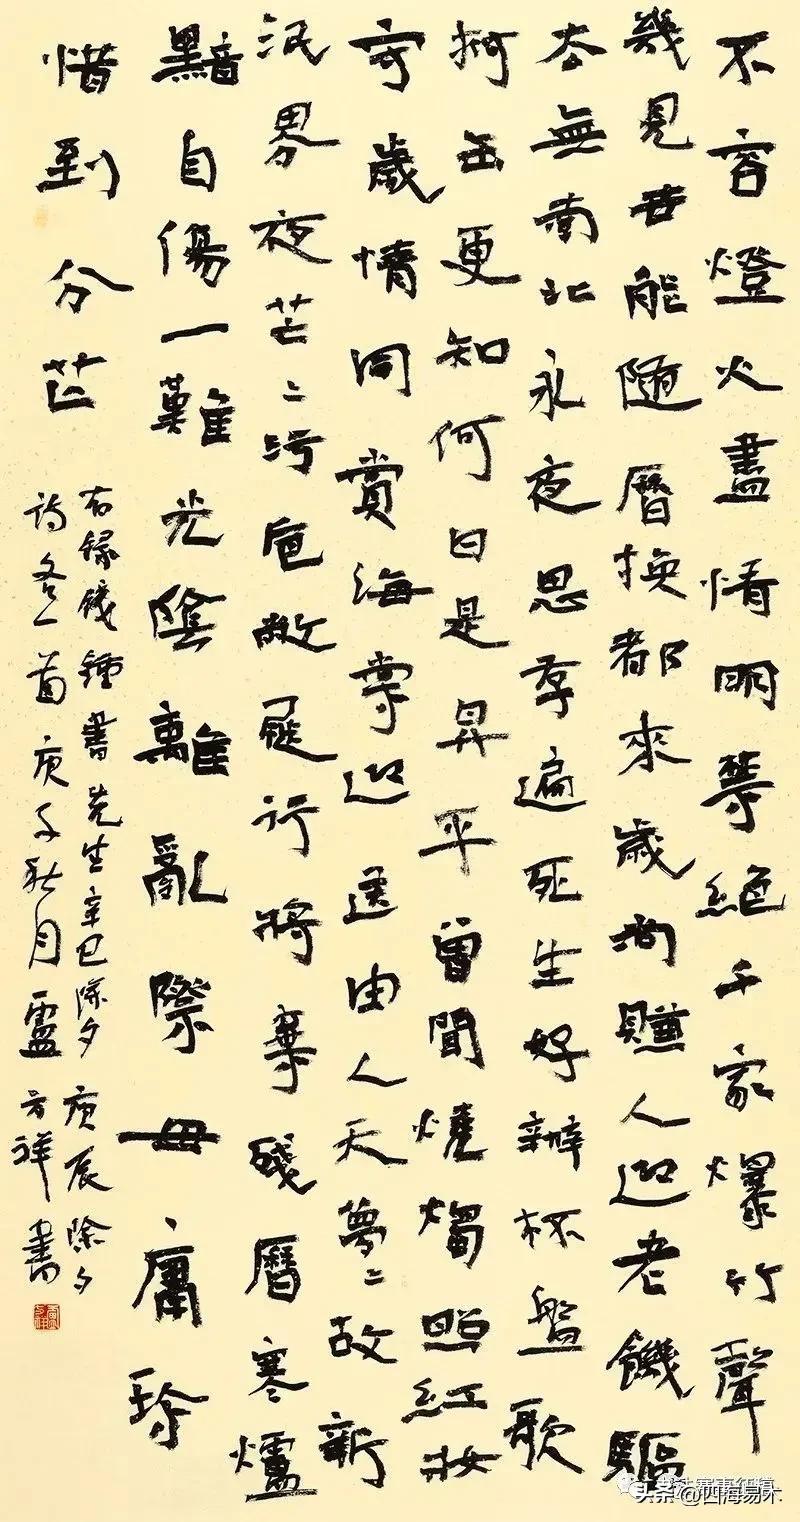 不容燈火盡情明禁絕千家爆竹聲
幾見世能隨曆換都來歲尚賺人迎老饑驅
去無南北永夜思存遍死生好辦杯盤歌
拊缶更知何日是昇平曾聞燒燭照紅妝
守歲情同賞海棠迎送由人天夢〻故新
泯界夜芒〻汚卮敝屣行將棄殘曆寒爐
黯自傷一難光陰離亂際毋庸珍
惜到分芒
右錄錢鍾書先生辛巳除夕庚辰除夕
詩各一首庚子秋月盧方祥書
头条@四海易木